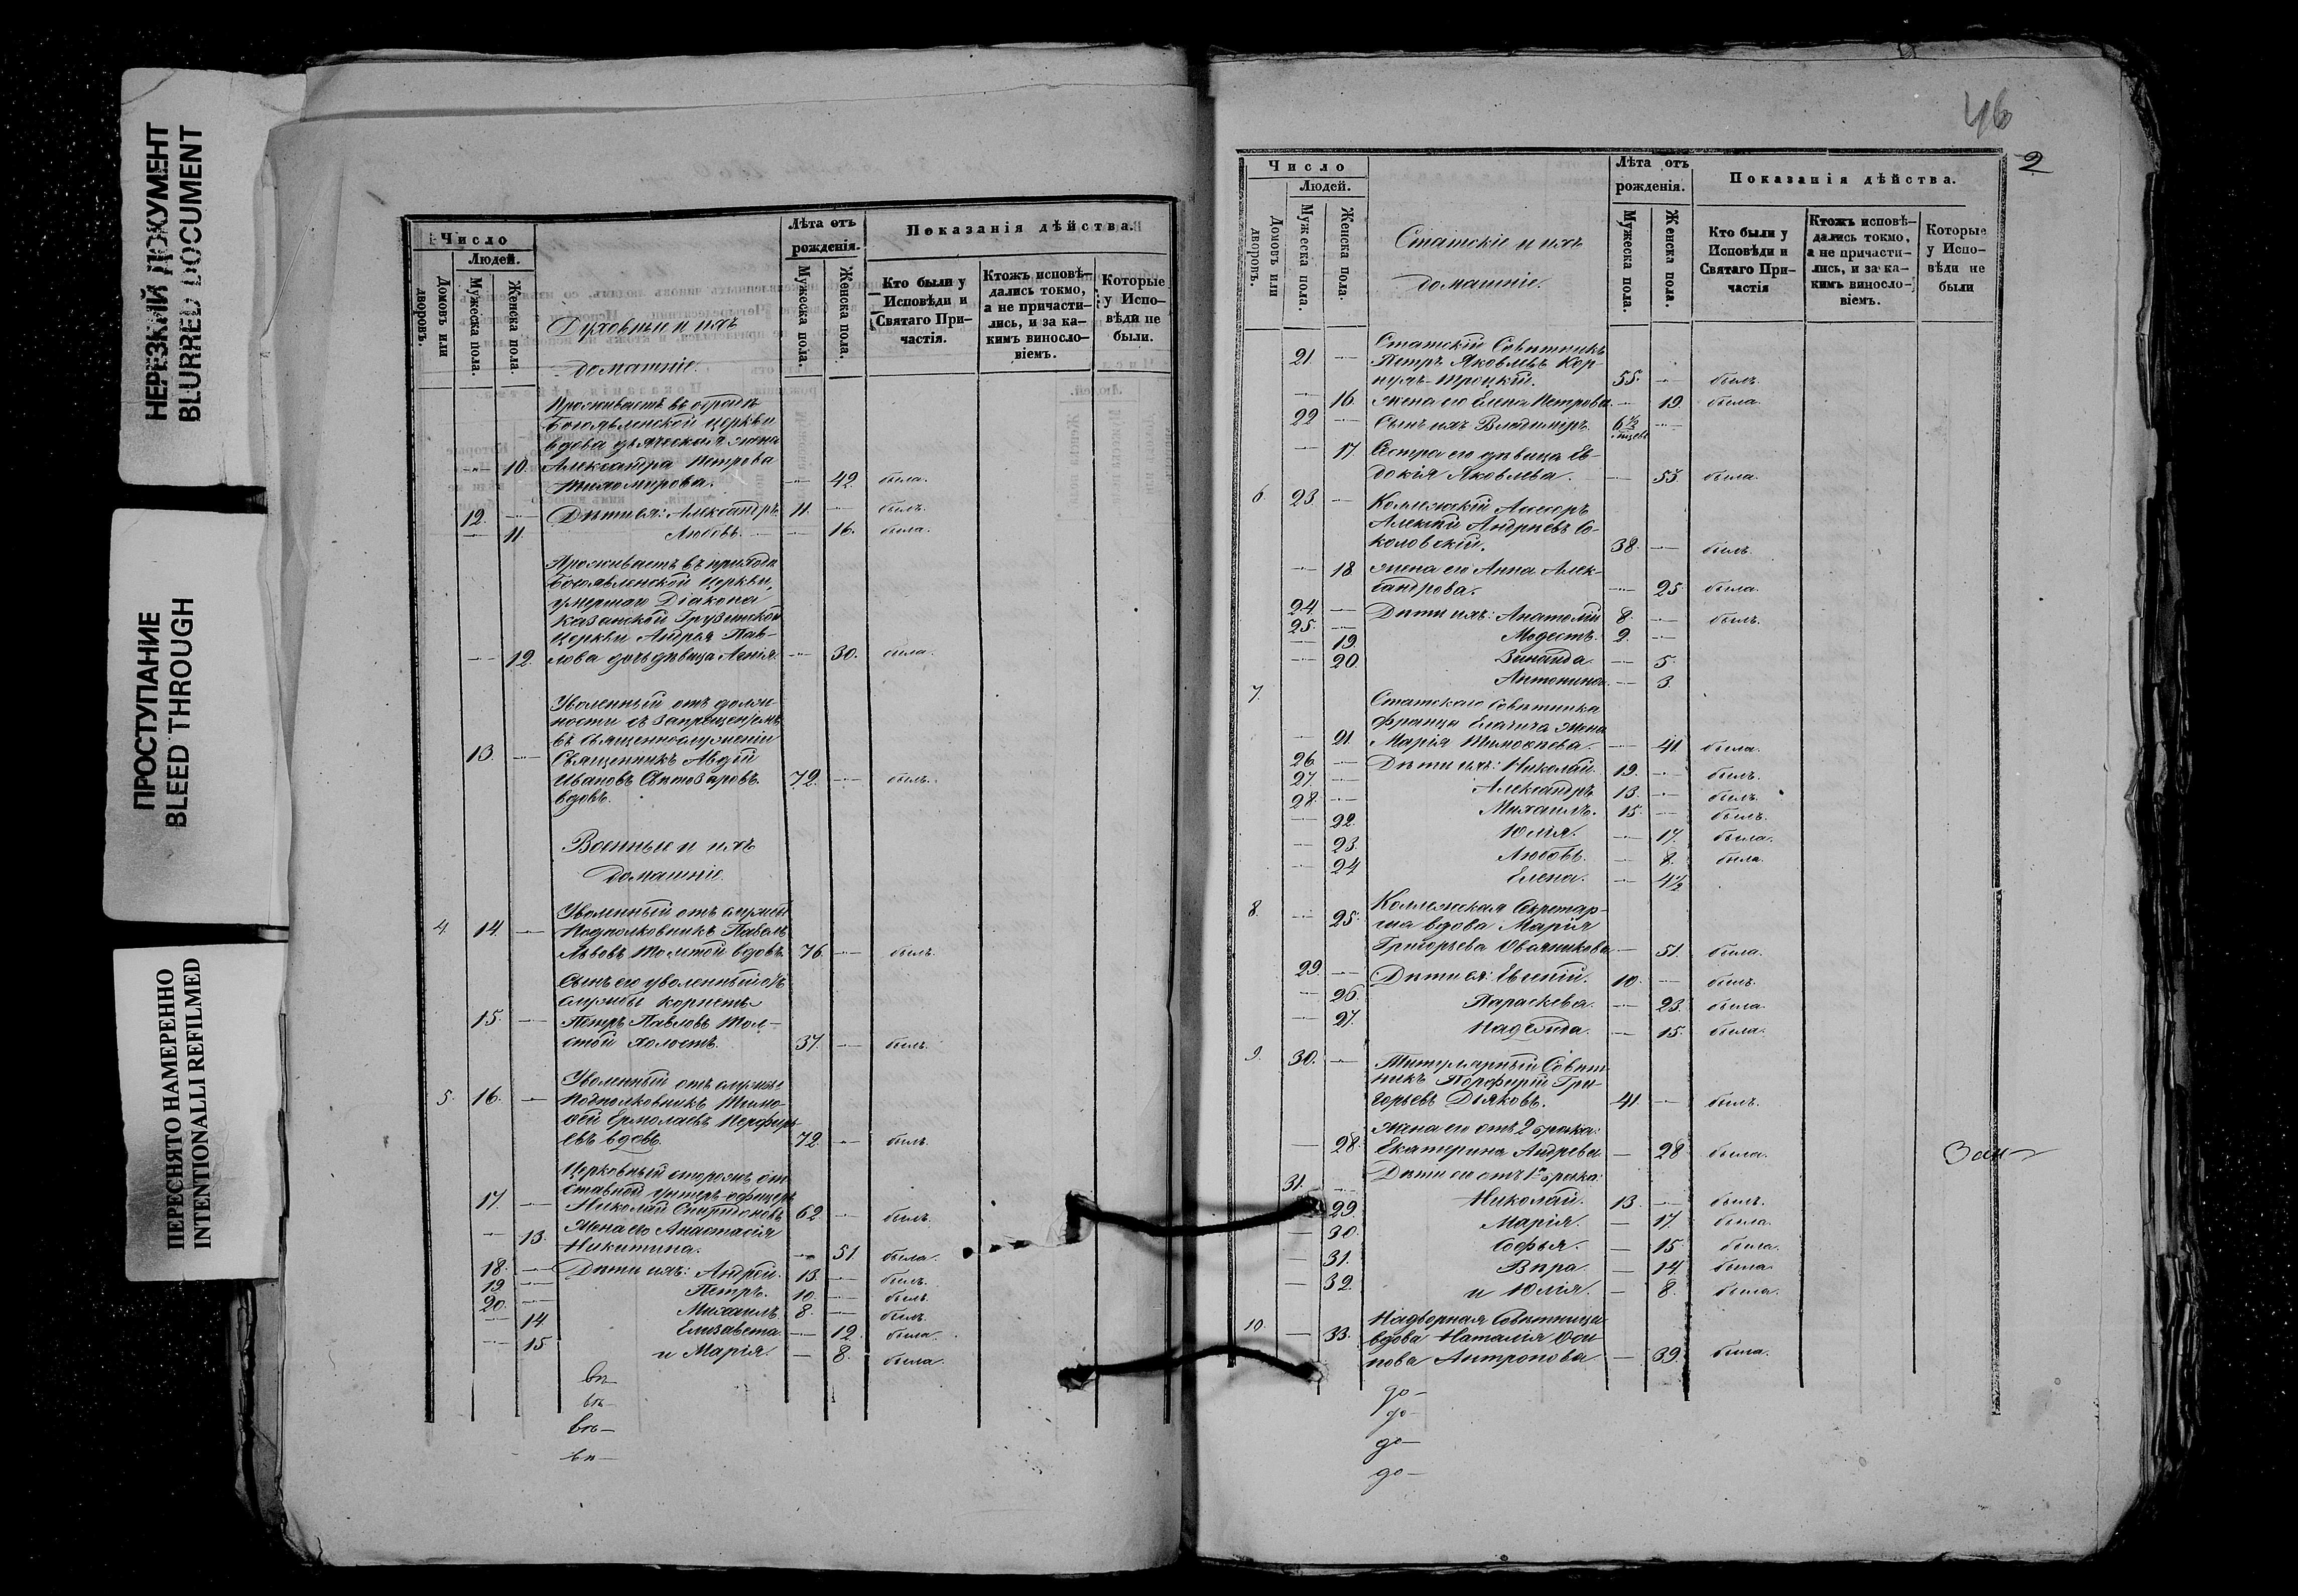 НЕРЕЗКИЙ ДОКУМЕНТ
BLURRED DOCUMENT
ПРОСТУПАНИЕ
BLEED THROUGH
ПЕРЕСНЯТО НАМЕРЕННО
INTENTIONALLI REFILMED
Число
Людей.
Домовъ или дворовъ.
Мужеска пола.
Женска пола.
Духовные и ихъ
домашніе.
Лѣта отъ
рожденія.
Мужеска пола.
Женска пола.
Показанія дѣйства.
Кто были у Исповѣди и Святаго Причастія.
Ктожъ исповѣдались токмо, а не причастились, и за какимъ винословіемъ.
Которые у Исповѣди не были.
Проживаетъ въ оградѣ
Богоявленской церкви
вдова дьяческая жена
10. Александра Петрова
Тихомирова. 42. была.
12. Дѣти ея: Александръ 11. былъ.
11. Любовь. 16. была.
Проживаетъ въ приходѣ
Богоявленской церкви,
умершаго Діакона
Казанской Грузинской
церкви Андрея Пав-
12. лова дочь дѣвица 30. была.
Уволенный отъ долж-
ности съ запрещеніемъ
въ священнослуженіи
13. Священникъ Авдій
Ивановъ Свѣтозаровъ 72. былъ.
вдовъ.
Военные и ихъ
домашніе.
Уволенный отъ службы
4. 14. Подполковникъ Павелъ
Львовъ Толстой вдовъ. 76. былъ.
Сынъ его уволенный отъ
службы корнетъ
15. Петръ Павловъ Тол-
стой холостъ. 37. былъ.
Уволенный отъ службы
5. 16. Подполковникъ Тимо-
ѳей Ермолаевъ Перфирь-
евъ вдовъ. 72. былъ.
Церковный сторожъ от-
ставной унтеръ-офицеръ
17. Николай Спиридоновъ 62. былъ.
13. Жена его Анастасія
Никитина. 51. была.
18. Дѣти ихъ: Андрей. 13. былъ.
19. Петръ. 10. былъ.
20. Михаилъ. 8. былъ.
14. Елизавета. 12. была.
15 и Марія. 8. была.
46
2
Число
Людей.
Домовъ или дворовъ.
Мужеска пола.
Женска пола.
Статскіе и ихъ
домашніе.
Лѣта отъ
рожденія.
Мужеска пола.
Женска пола.
Показанія дѣйства.
Кто были у Исповѣди и Святаго Причастія
Ктожъ исповѣдались токмо, а не причастились, и за какимъ винословіемъ.
Которые у Исповѣди не были
Статскій Совѣтникъ
21 Петръ Яковлевъ Кор-
нухъ-Троцкій. 55. былъ.
16. жена его Елена Петрова. 19. была.
22 Сынъ ихъ Владимиръ. 6½
17 Сестра его дѣвица Ев-
докія Яковлева. 53. была.
6. 23. Коллежскій Ассесоръ
Алексѣй Андреевъ Со-
коловскій. 38. былъ.
18 жена его Анна Алек-
сандрова. 25 была.
24. Дѣти ихъ: Анатолій 8. былъ.
25. Модестъ. 2.
19. Зинаида 5.
20. Антонина. 3.
7. Статскаго Совѣтника
Франца Елачича жена
21. Марія Тимоѳеева. 41 была.
26. Дѣти ихъ: Николай. 19. былъ.
27. Александръ 13. былъ.
28. Михаилъ. 15. былъ.
22. Юлія. 17. была.
23. Любовь. 8. была.
24 Елена. 4½
8. Коллежская Секретар-
25. ша вдова Марія
Григорьева Овчинникова 51. была.
29. Дѣти ея: Евгеній. 10. былъ.
26. Параскева. 23. была
27. Надежда. 15. была.
9. 30. Титулярный Совѣт-
никъ Порфирій Гри-
горьевъ Дьяковъ. 41. былъ.
жена его отъ 2 брака:
28. Екатерина Андреева 28 была.
31. Дѣти его отъ 1го брака:
Николай. 13. былъ.
29. Марія. 17. была.
30. Софья. 15. была.
31. Вѣра. 14. была.
32. и Юлія. 8. была.
10. Надворная Совѣтница
33. вдова Наталія Оси-
пова Антропова 39. была.
до-
до-
до-
до-